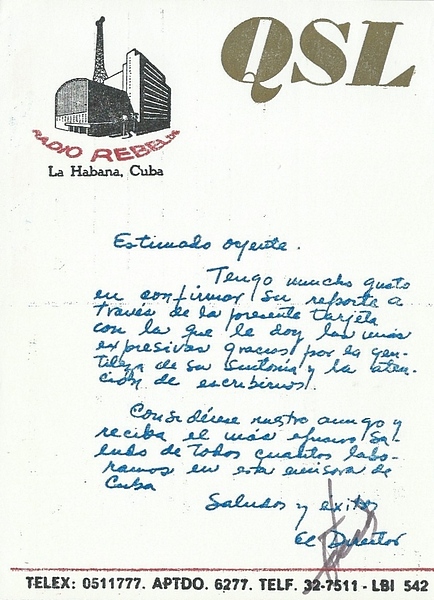 QSL
RADIO REBELDE
La Habana, Cuba
Estimado oyente.
Tengo mucho gusto
en confirmar su reporte a
través de la presente tarjeta
con la que le doy las más
expresivas gracias por la gen-
tileza de su sintonía y la aten-
ción de escribirnos.
Considérese nuestro amigo y
reciba el más efusivo Sa-
ludo de todos cuantos labo-
ramos en esta emisora de
Cuba
Saludos y exitos
El Director
TELEX: 0511777. APTDO. 6277. TELF. 32-7511 - LBI 542